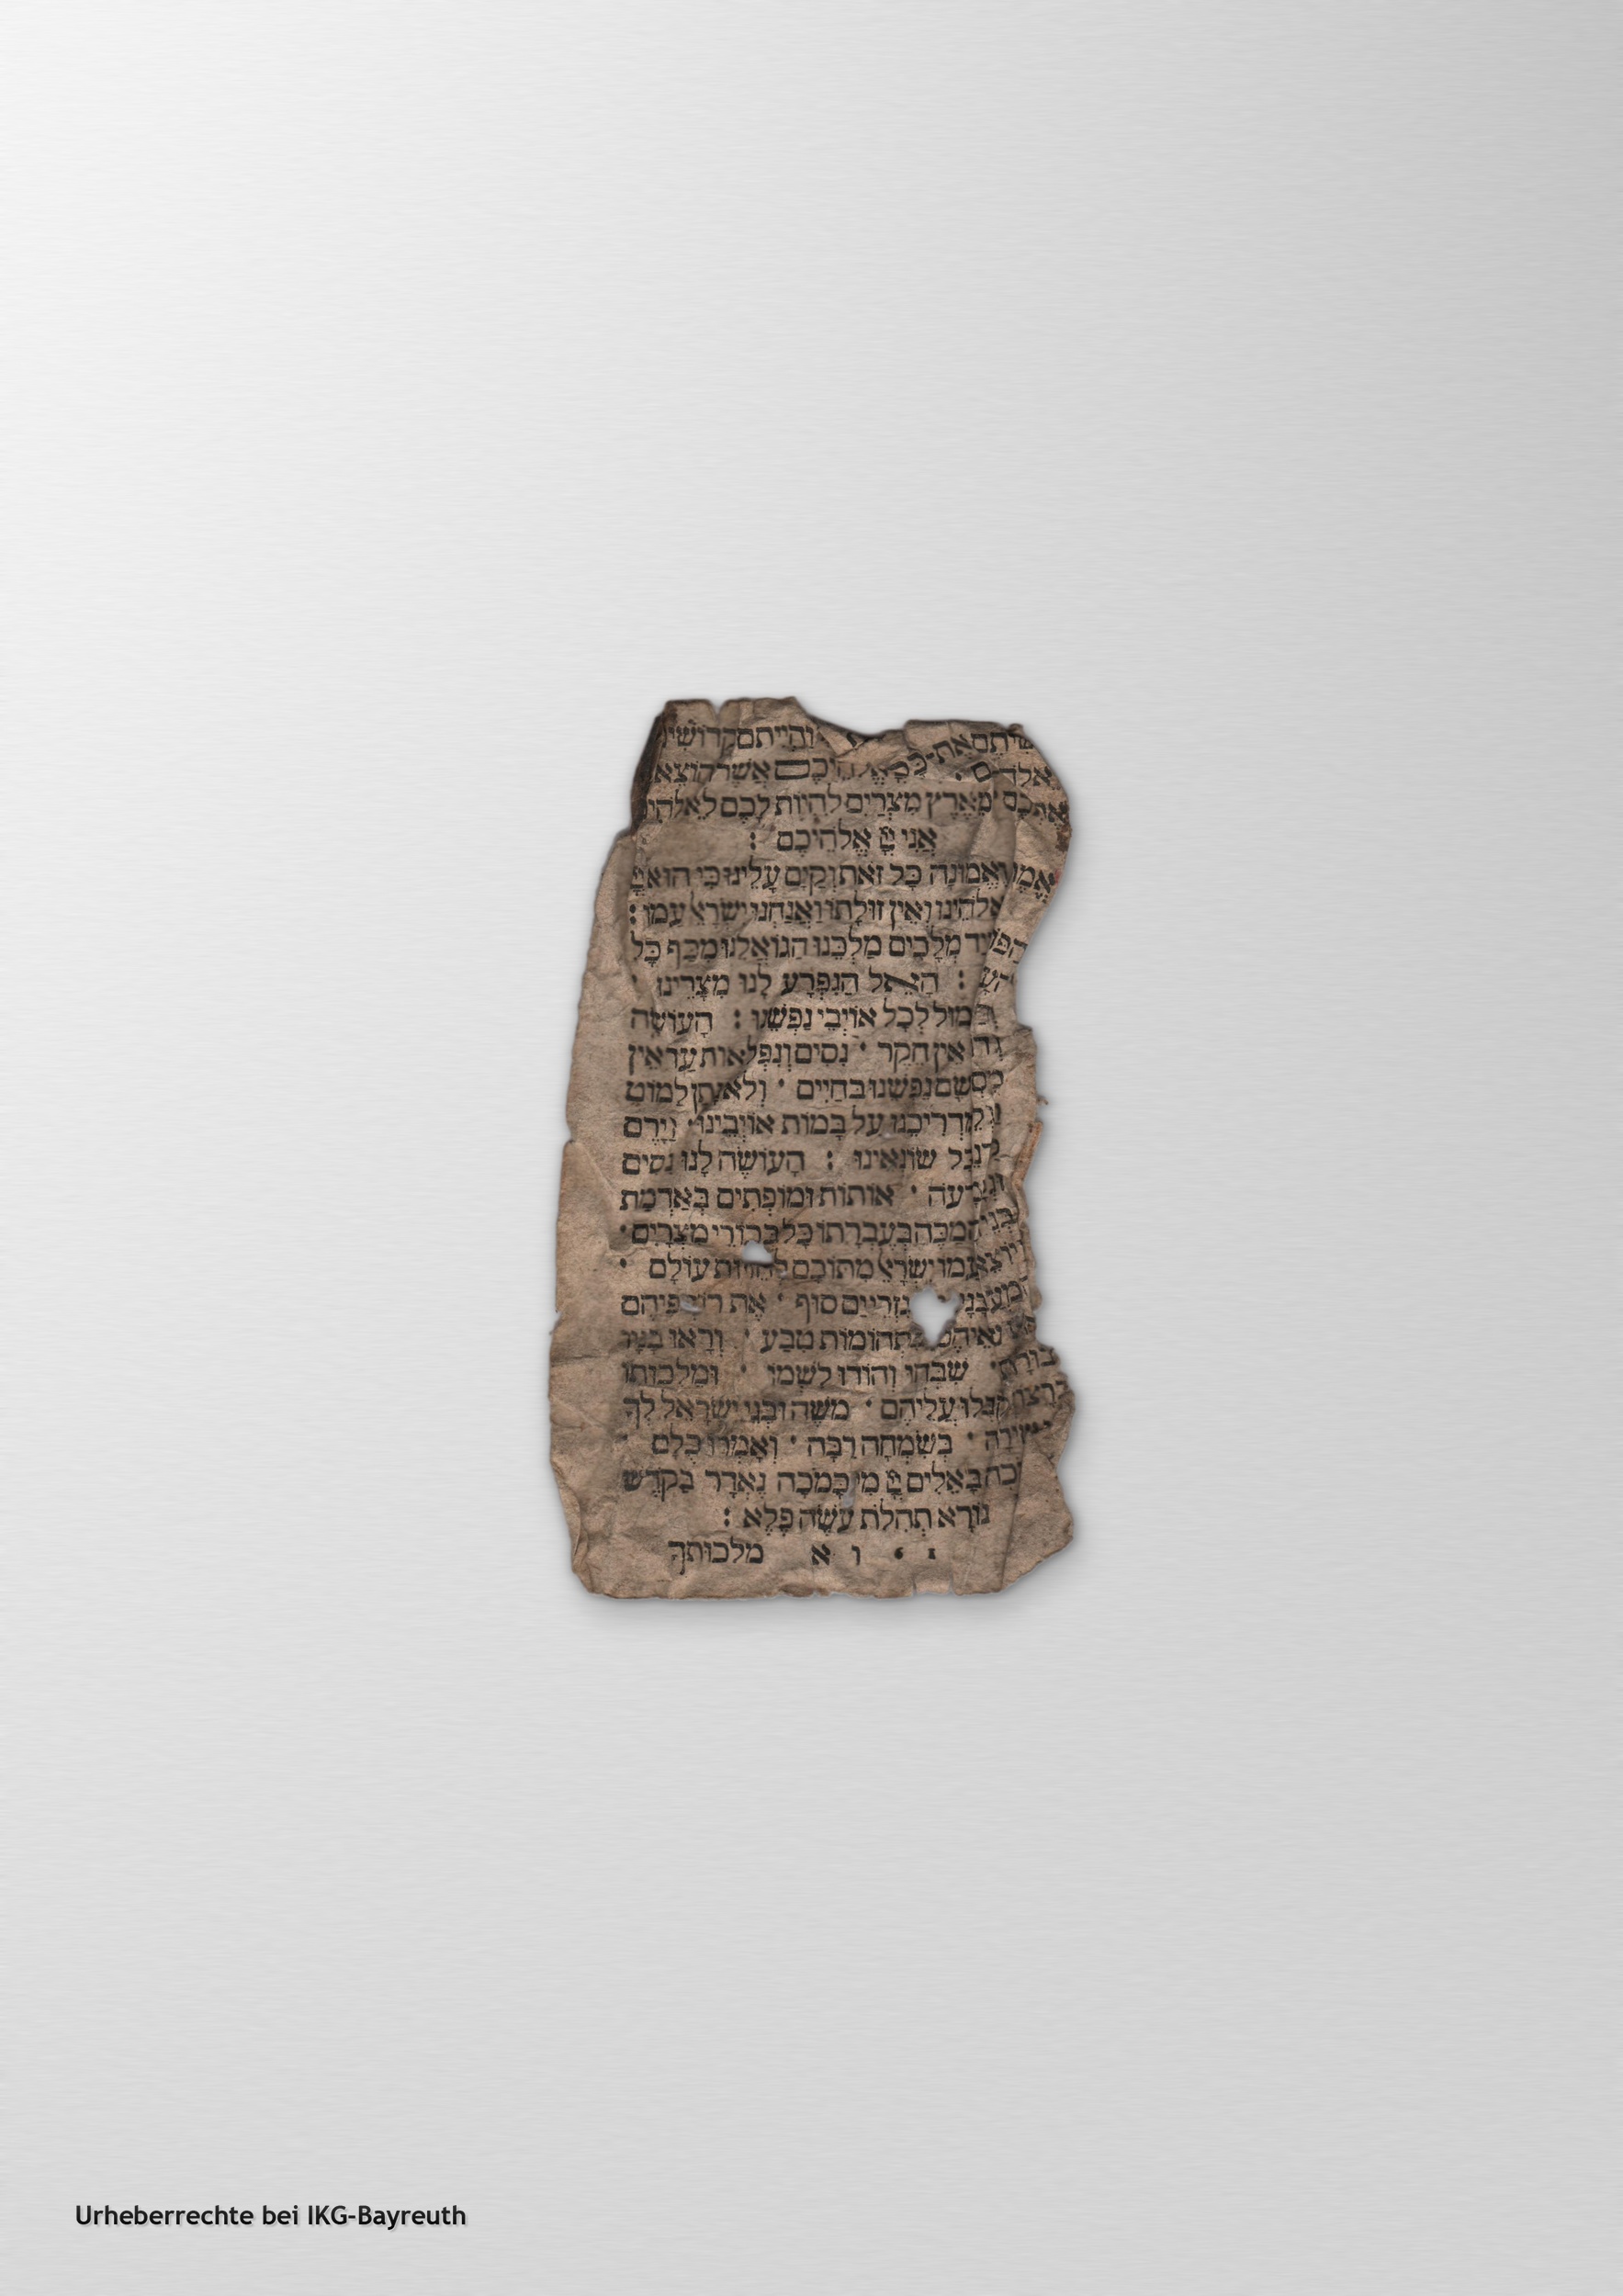 ועשיתם את כל והייתם קדושים
אתכם מארץ מצרים להיות לכם לאלהים
אֲנִי יְיָ אֱלֹהֵיכֶם :
וֶאֱמוּנָה כָּל זֹאת וְקַיָּם עָלֵינוּ כִּי הוּא יְיָ
אלהינו ואין זולתו ואנחנו ישראל עמו :
מְלָכִים מַלְכֵּנוּ הַגּוֹאֲלֵנוּ מִכַּף כָּל
: הָאֵל הַנִּפְרָע לָנוּ מִצָּרֵינוּ ·
לְכָל אוֹיְבֵי נַפְשֵׁנוּ : הָעוֹשֶׂה
אין חקר · נסים ונפלאות עד אין
נַפְשֵׁנוּ בַּחַיִּים · וְלֹא נָתַן לַמּוֹט
עַל בָּמוֹת אוֹיְבֵינוּ · וַיָּרֶם
שׂוֹנְאֵינוּ : הָעוֹשֶׂה לָנוּ נִסִּים
אוֹתוֹת וּמוֹפְתִים בְּאַדְמַת
המכה בעברתו כל בכורי מצרים ·
עמו ישראל מתוכם לחירות עולם ·
גזרי ים סוף · את רודפיהם
בתהומות טבע · וראו בניו
שבחו והודו לשמו · ומלכותו
קבלו עליהם · משה ובני ישראל לך
שירה · בְּשִׂמְחָה רַבָּה · וְאָמְרוּ כֻלָּם ·
באלים יְיָ מי כמכה נאדר בקדש
נוֹרָא תְהִלֹּת עֹשֵׂה פֶלֶא :
ו א מלכותך
Urheberrechte bei IKG-Bayreuth